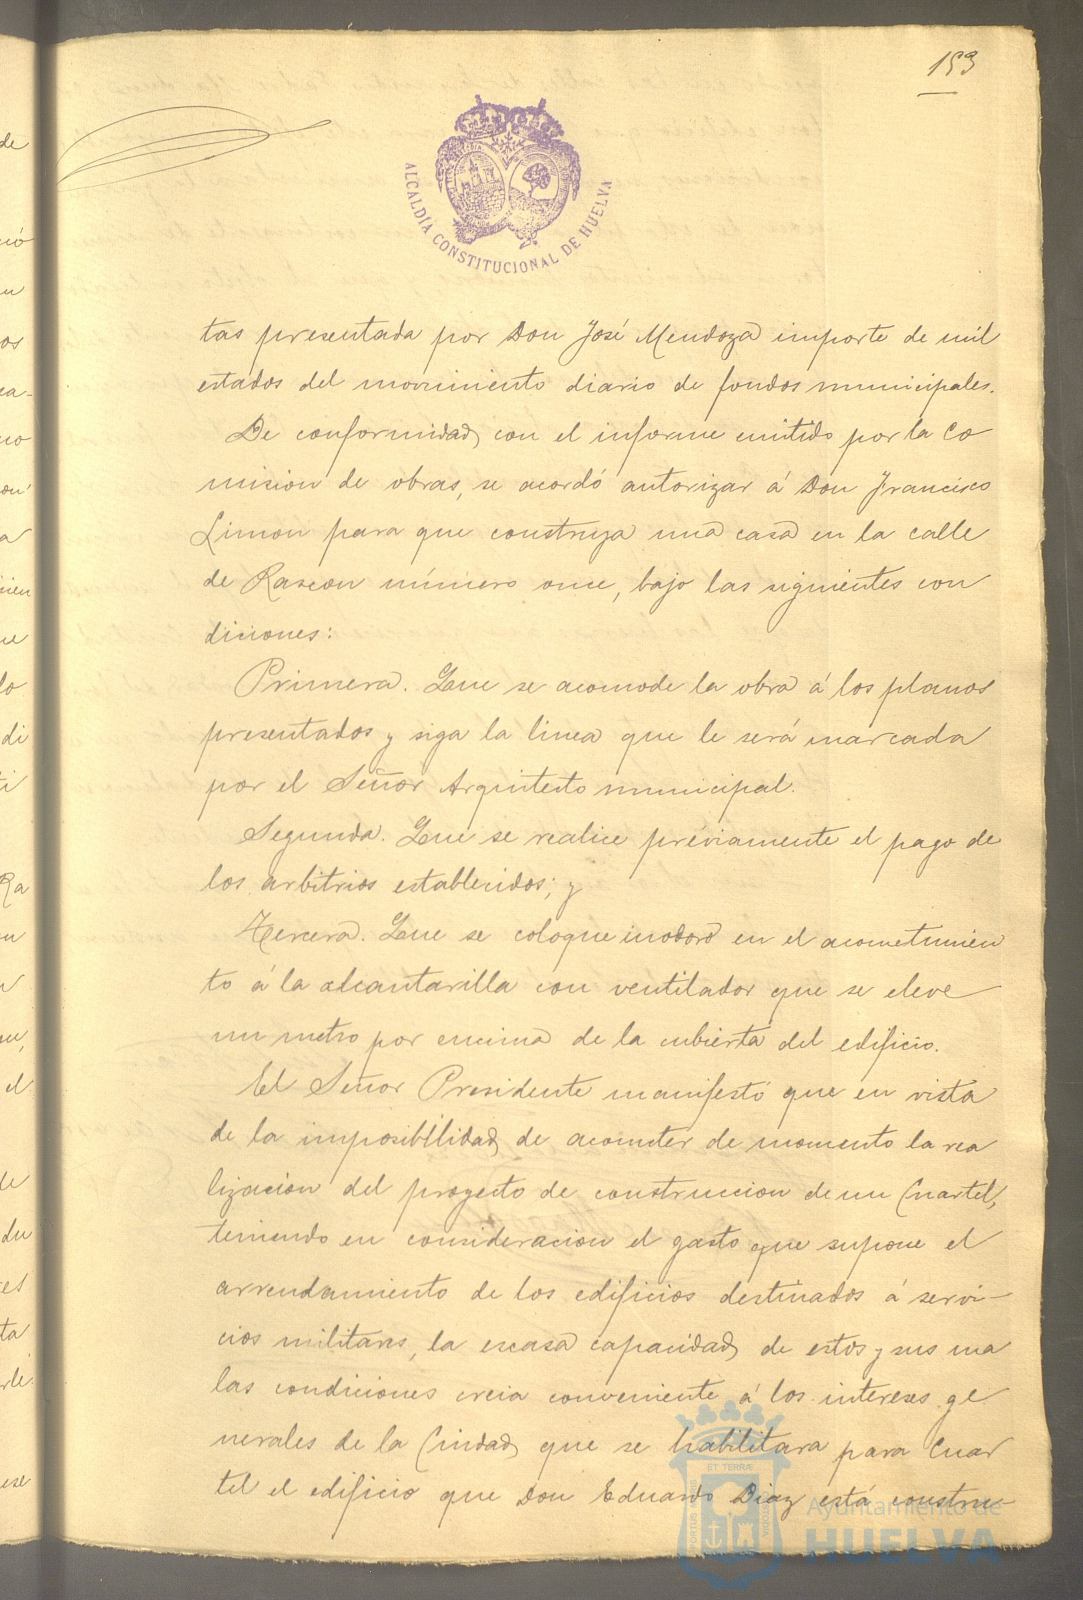 153
ALCALDÍA CONSTITUCIONAL DE HUELVA
tas presentada por Don José Mendoza importe de mil
estados del movimiento diario de fondos municipales.
De conformidad con el informe emitido por la Co
mision de obras, se acordó autorizar á Don Francisco
Limon para que construya una casa en la calle
de Rascon número once, bajo las siguientes con
diciones:
Primera. Que se acomode la obra á los planos
presentados y siga la linea que le será marcada
por el Señor Arquitecto municipal.
Segunda. Que se realice préviamente el pago de
los arbitrios establecidos; y
Tercera. Que se coloque inodoro en el acometimien
to á la alcantarilla con ventilador que se eleve
un metro por encima de la cubierta del edificio.
El Señor Presidente manifestó que en vista
de la imposibilidad de acometer de momento la rea
lizacion del proyecto de construccion de un Cuartel,
teniendo en consideracion el gasto que supone el
arrendamiento de los edificios destinados á servi-
cios militares, la escasa capacidad de estos y sus ma
las condiciones creia conveniente á los intereses ge
nerales de la Ciudad que se habilitara para Cuar
tel el edificio que Don Eduardo Diaz está constru-
ET TERRÆ
PORTUS MARIS
CUSTODIA
Ayuntamiento de
HUELVA